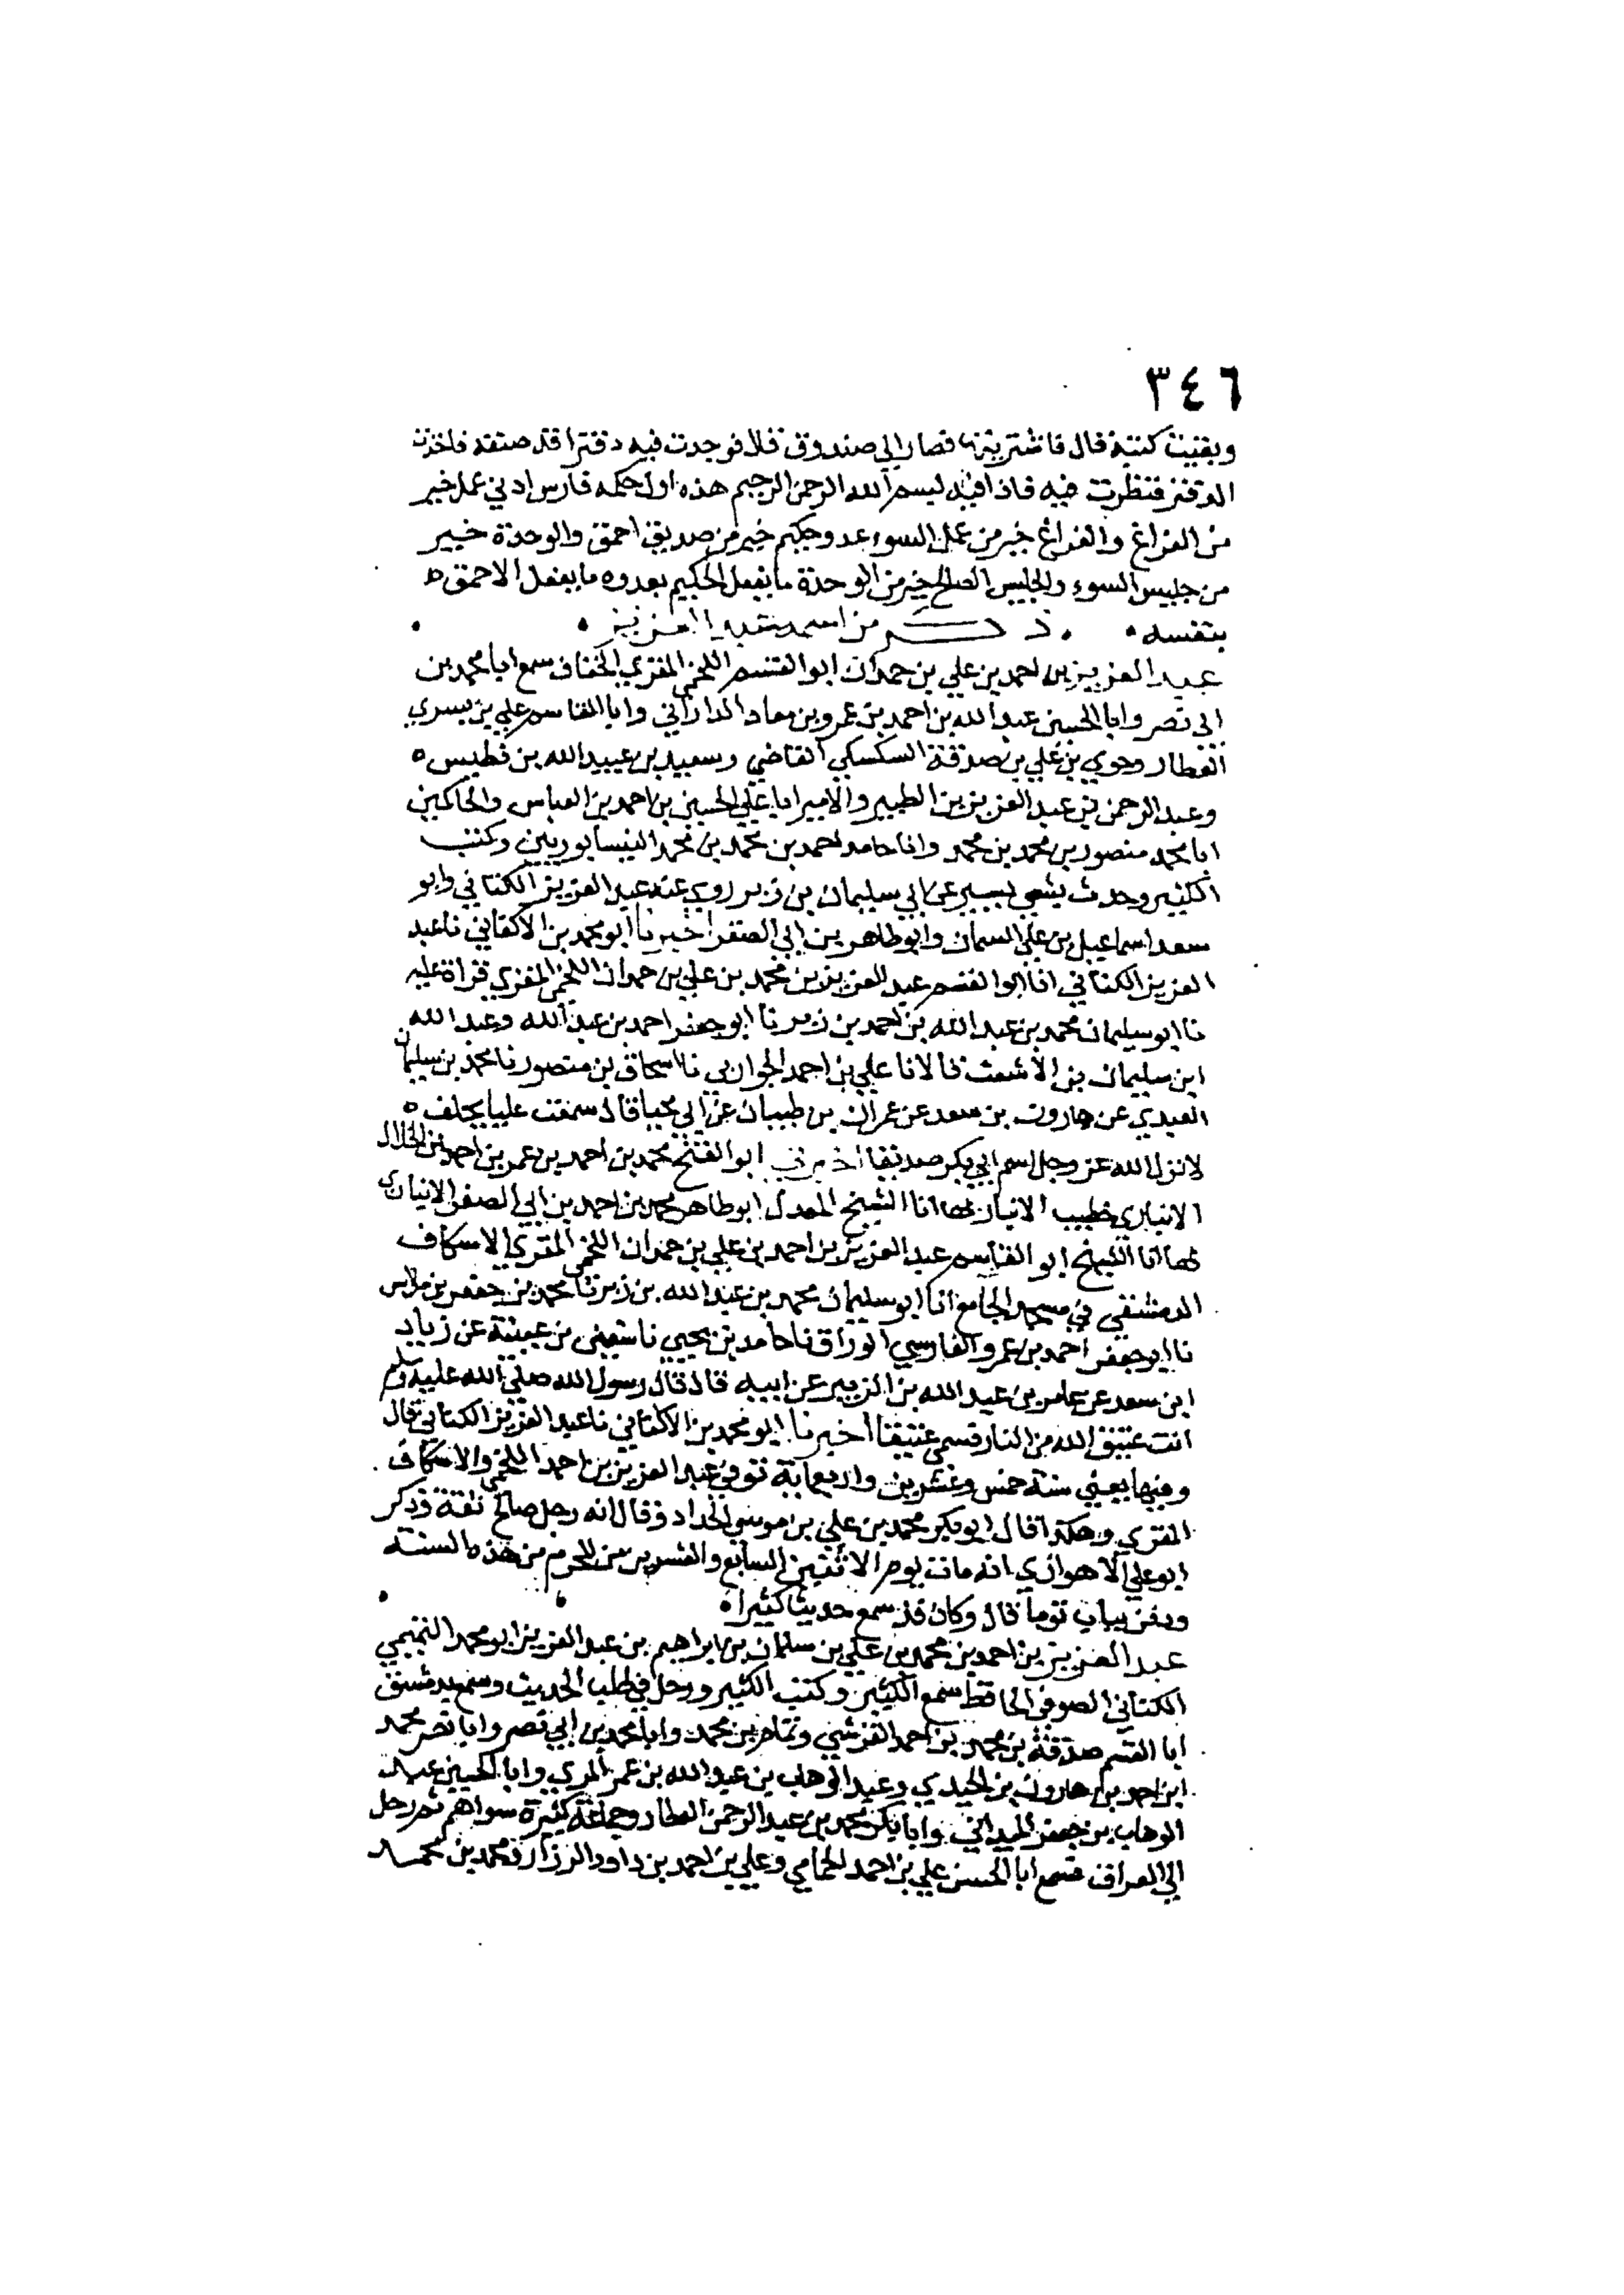 ٣٤٦
وبقيت كتبه قال فاشتريتها فصار الي صندوق فلا فوجدت فيه دفترا قد صنفه فاخذت
الدفتر فنظرت فيه فاذا فيه بسم الله الرحمن الرحيم هذه اول حكمه فارس ادني عمل خير
من الفراغ والفراغ خير من عمل السوء عدو حكيم خير من صديق احمق والوحدة خير
من جليس السوء والجليس الصالح خير من الوحدة ما يفعل الحكيم بعدوه ما يفعل الاحمق
بنفسه ذكر من اسمه عبد العزيز
عبد العزيز بن احمد بن علي بن حمدان ابو القسم اللخمي المقري الخفاف سمع ابا محمد بن
ابي نصر وابا الحسين عبد الله بن احمد بن عمرو بن معاد الداراني وابا القاسم علي بن بسري
العطار وحوي بن علي بن صدقة السكسكي القاضي وسعيد بن عبيد الله بن فطيس
وعبد الرحمن بن عبد العزيز بن الطبير والامير ابا علي الحسين بن احمد بن العباس والحاكمين
ابا محمد منصور بن محمد بن محمد وابا حامد احمد بن محمد بن محمد النيسابوريين وكتب
الكثير وحدث بشي يسير عن ابي سليمان بن زبر روي عنه عبد العزيز الكتاني وابو
سعد اسماعيل بن علي السمان وابو طاهر بن ابي الصقر اخبرنا ابو محمد بن الاكفاني نا عبد
العزيز الكتاني انا ابو القسم عبد العزيز بن محمد بن علي بن حمدان اللخمي المقري قراة عليه
نا ابو سليمان محمد بن عبد الله بن احمد بن زبر نا ابو جعفر احمد بن عبد الله وعبد الله
ابن سليمان بن الاشعث قالا نا علي بن احمد الجواربي نا اسحاق بن منصور نا محمد بن سليمان
العبدي عن هارون بن سعد عن عمران بن ظبيان عن ابي يحيا قال سمعت عليا يحلف
لانزل الله عز وجل اسم ابي بكر صديقا اخبرني ابو الفتح محمد بن احمد بن عمر بن احمد بن الخلال
الانباري خطيب الانبار بها انا الشيخ المعدل ابو طاهر محمد بن احمد بن ابي الصقر الانباري
بها انا الشيخ ابو القاسم عبد العزيز بن احمد بن علي بن حمدان اللخمي المقري الاسكاف
الدمشقي في مسجد الجامع انا ابو سليمان محمد بن عبد الله بن زبر نا محمد بن جعفر بن ملاس
نا ابو جعفر احمد بن عمرو الفارسي الوراق نا حامد بن يحيي نا سفين بن عيينة عن زياد
ابن سعد عن عامر بن عبد الله بن الزبير عن ابيه قال قال رسول الله صلي الله عليه وسلم
انت عتيق الله من النار فسمي عتيقا اخبرنا ابو محمد بن الاكفاني نا عبد العزيز الكتاني قال
وفيها يعني سنة خمس وعشرين واربعماية توفي عبد العزيز بن احمد اللخمي الاسكاف
المقري وهكذا قال ابو بكر محمد بن علي بن موسي الحداد وقال انه رجل صالح ثقة وذكر
ابو علي الاهوازي انه مات يوم الاثنين السابع والعشرين من المحرم من هذه السنة
ودفن بباب توما قال وكان قد سمع حديثا كثيرا
عبد العزيز بن احمد بن محمد بن علي بن سلمان بن ابراهيم بن عبد العزيز ابو محمد التميمي
الكتاني الصوفي الحافظ سمع الكثير وكتب الكثير ورحل في طلب الحديث وسمع بدمشق
ابا القسم صدقة بن محمد بن احمد القرشي وتمام بن محمد وابا محمد بن ابي نصر وابا نصر محمد
ابن احمد بن هارون بن الجندي وعبد الوهاب بن عبد الله بن عمر المري وابا الحسين عبد
الوهاب بن جعفر الميداني وابا بكر محمد بن عبد الرحمن القطان وجماعة كثيرة سواهم ثم رحل
الي العراق فسمع ابا الحسن علي بن احمد الحمامي وعلي بن احمد بن داود الرزاز ومحمد بن محمد